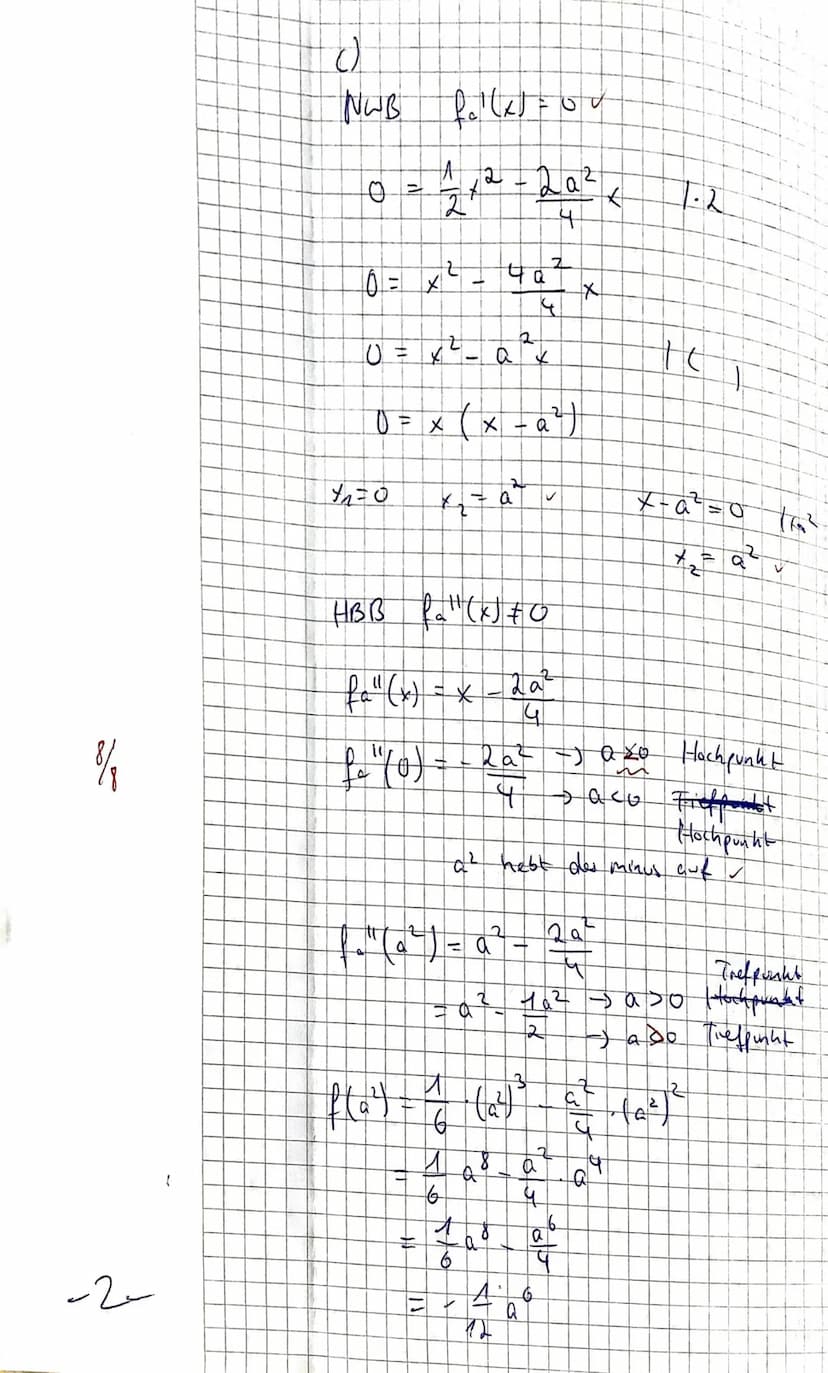 c)
NWB fa'(x) = 0 ✓
0 = 1/2 x² - 2a²/4 x | · 2
0 = x² - 4a²/4 x
0 = x² - a²x | ( )
0 = x (x - a²)
x₁ = 0 x₂ = a² ✓ x - a² = 0 | + a²
x₂ = a² ✓
HBB fa''(x) ≠ 0
fa''(x) = x - 2a²/4
8/8
fa''(0) = - 2a²/4 → a > 0 Hochpunkt
→ a < 0 Tiefpunkt
Hochpunkt
a² hebt das minus auf ✓
fa''(a²) = a² - 2a²/4
Tiefpunkt
= a² - 1a²/2 → a > 0 Hochpunkt
→ a > 0 Tiefpunkt
f(a²) = 1/6 · (a²)³ - a²/4 · (a²)²
= 1/6 a⁸ - a²/4 · a⁴
= 1/6 a⁸ - a⁶/4
= - 1/12 a⁶
-2-